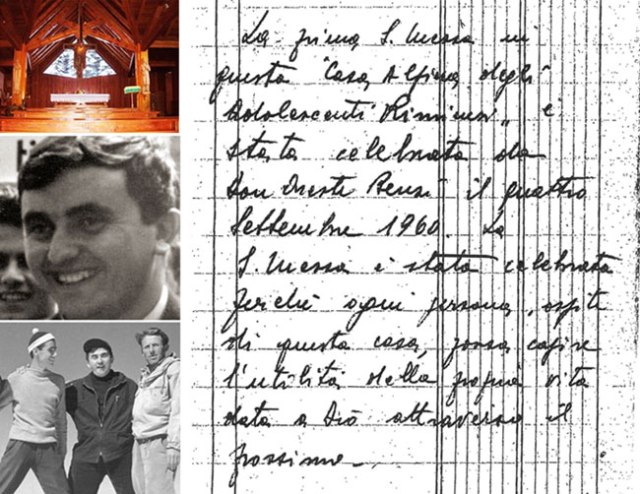 La prima S. Messa in
questa "Casa Alpina degli
Adolescenti Riminesi" è
stata celebrata da
Don Oreste Benzi il quattro
Settembre 1960. La
S. Messa è stata celebrata
perché ogni persona, ospite
di questa casa, possa capire
l'utilità della propria vita
data a Dio attraverso il
prossimo_